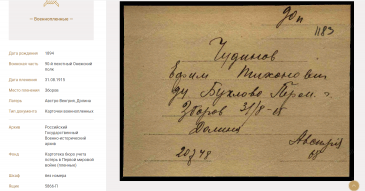 — Военнопленные —
Дата рождения 1894
Воинская часть 90-й пехотный Онежский полк
Дата пленения 31.08.1915
Место пленения Зборов
Лагерь Австро-Венгрия, Долина
Тип документа Карточки военнопленных
Архив Российский Государственный Военно-исторический архив
Фонд Картотека бюро учета потерь в Первой мировой войне (пленные)
Шкаф без номера
Ящик 5866-П
доп
1183
Чудинов
Ефим Тихонович
Зборов 31/8-15
Долина
Австрія
20348